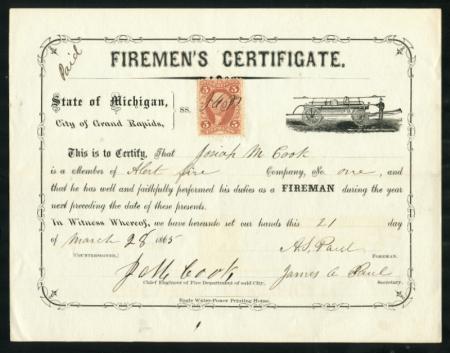 Paid
FIREMEN'S CERTIFICATE.
State of Michigan,
City of Grand Rapids,
SS.
5 5
This is to Certify, That Josiah M Cook
is a Member of Alert fire Company, No. one, and
that he has well and faithfully performed his duties as a FIREMAN during the year
next preceding the date of these presents.
In Witness Whereof, we have hereunto set our hands this 21 day
of March 28 1865
A.S. Paul
FOREMAN.
(COUNTERSIGNED,)
J M Cook
James A Paul
Chief Engineer of Fire Department of said City.
Secretary.
Eagle Water-Power Printing House.